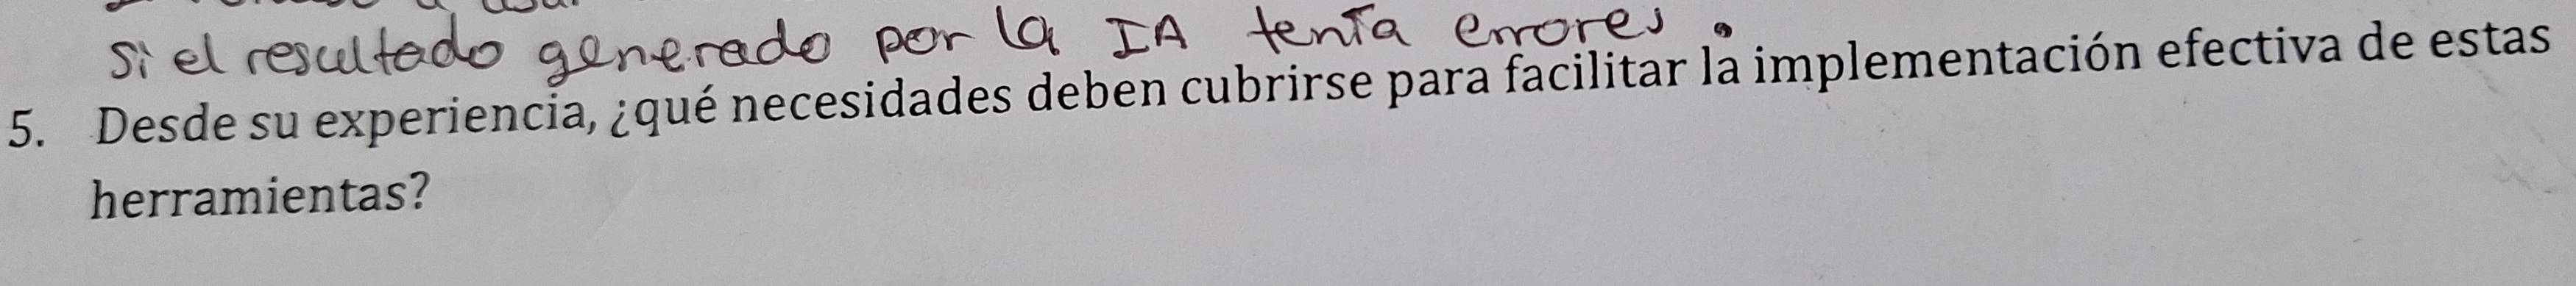 si el resultado generado por la IA tenía errores.
5. Desde su experiencia, ¿qué necesidades deben cubrirse para facilitar la implementación efectiva de estas
herramientas?